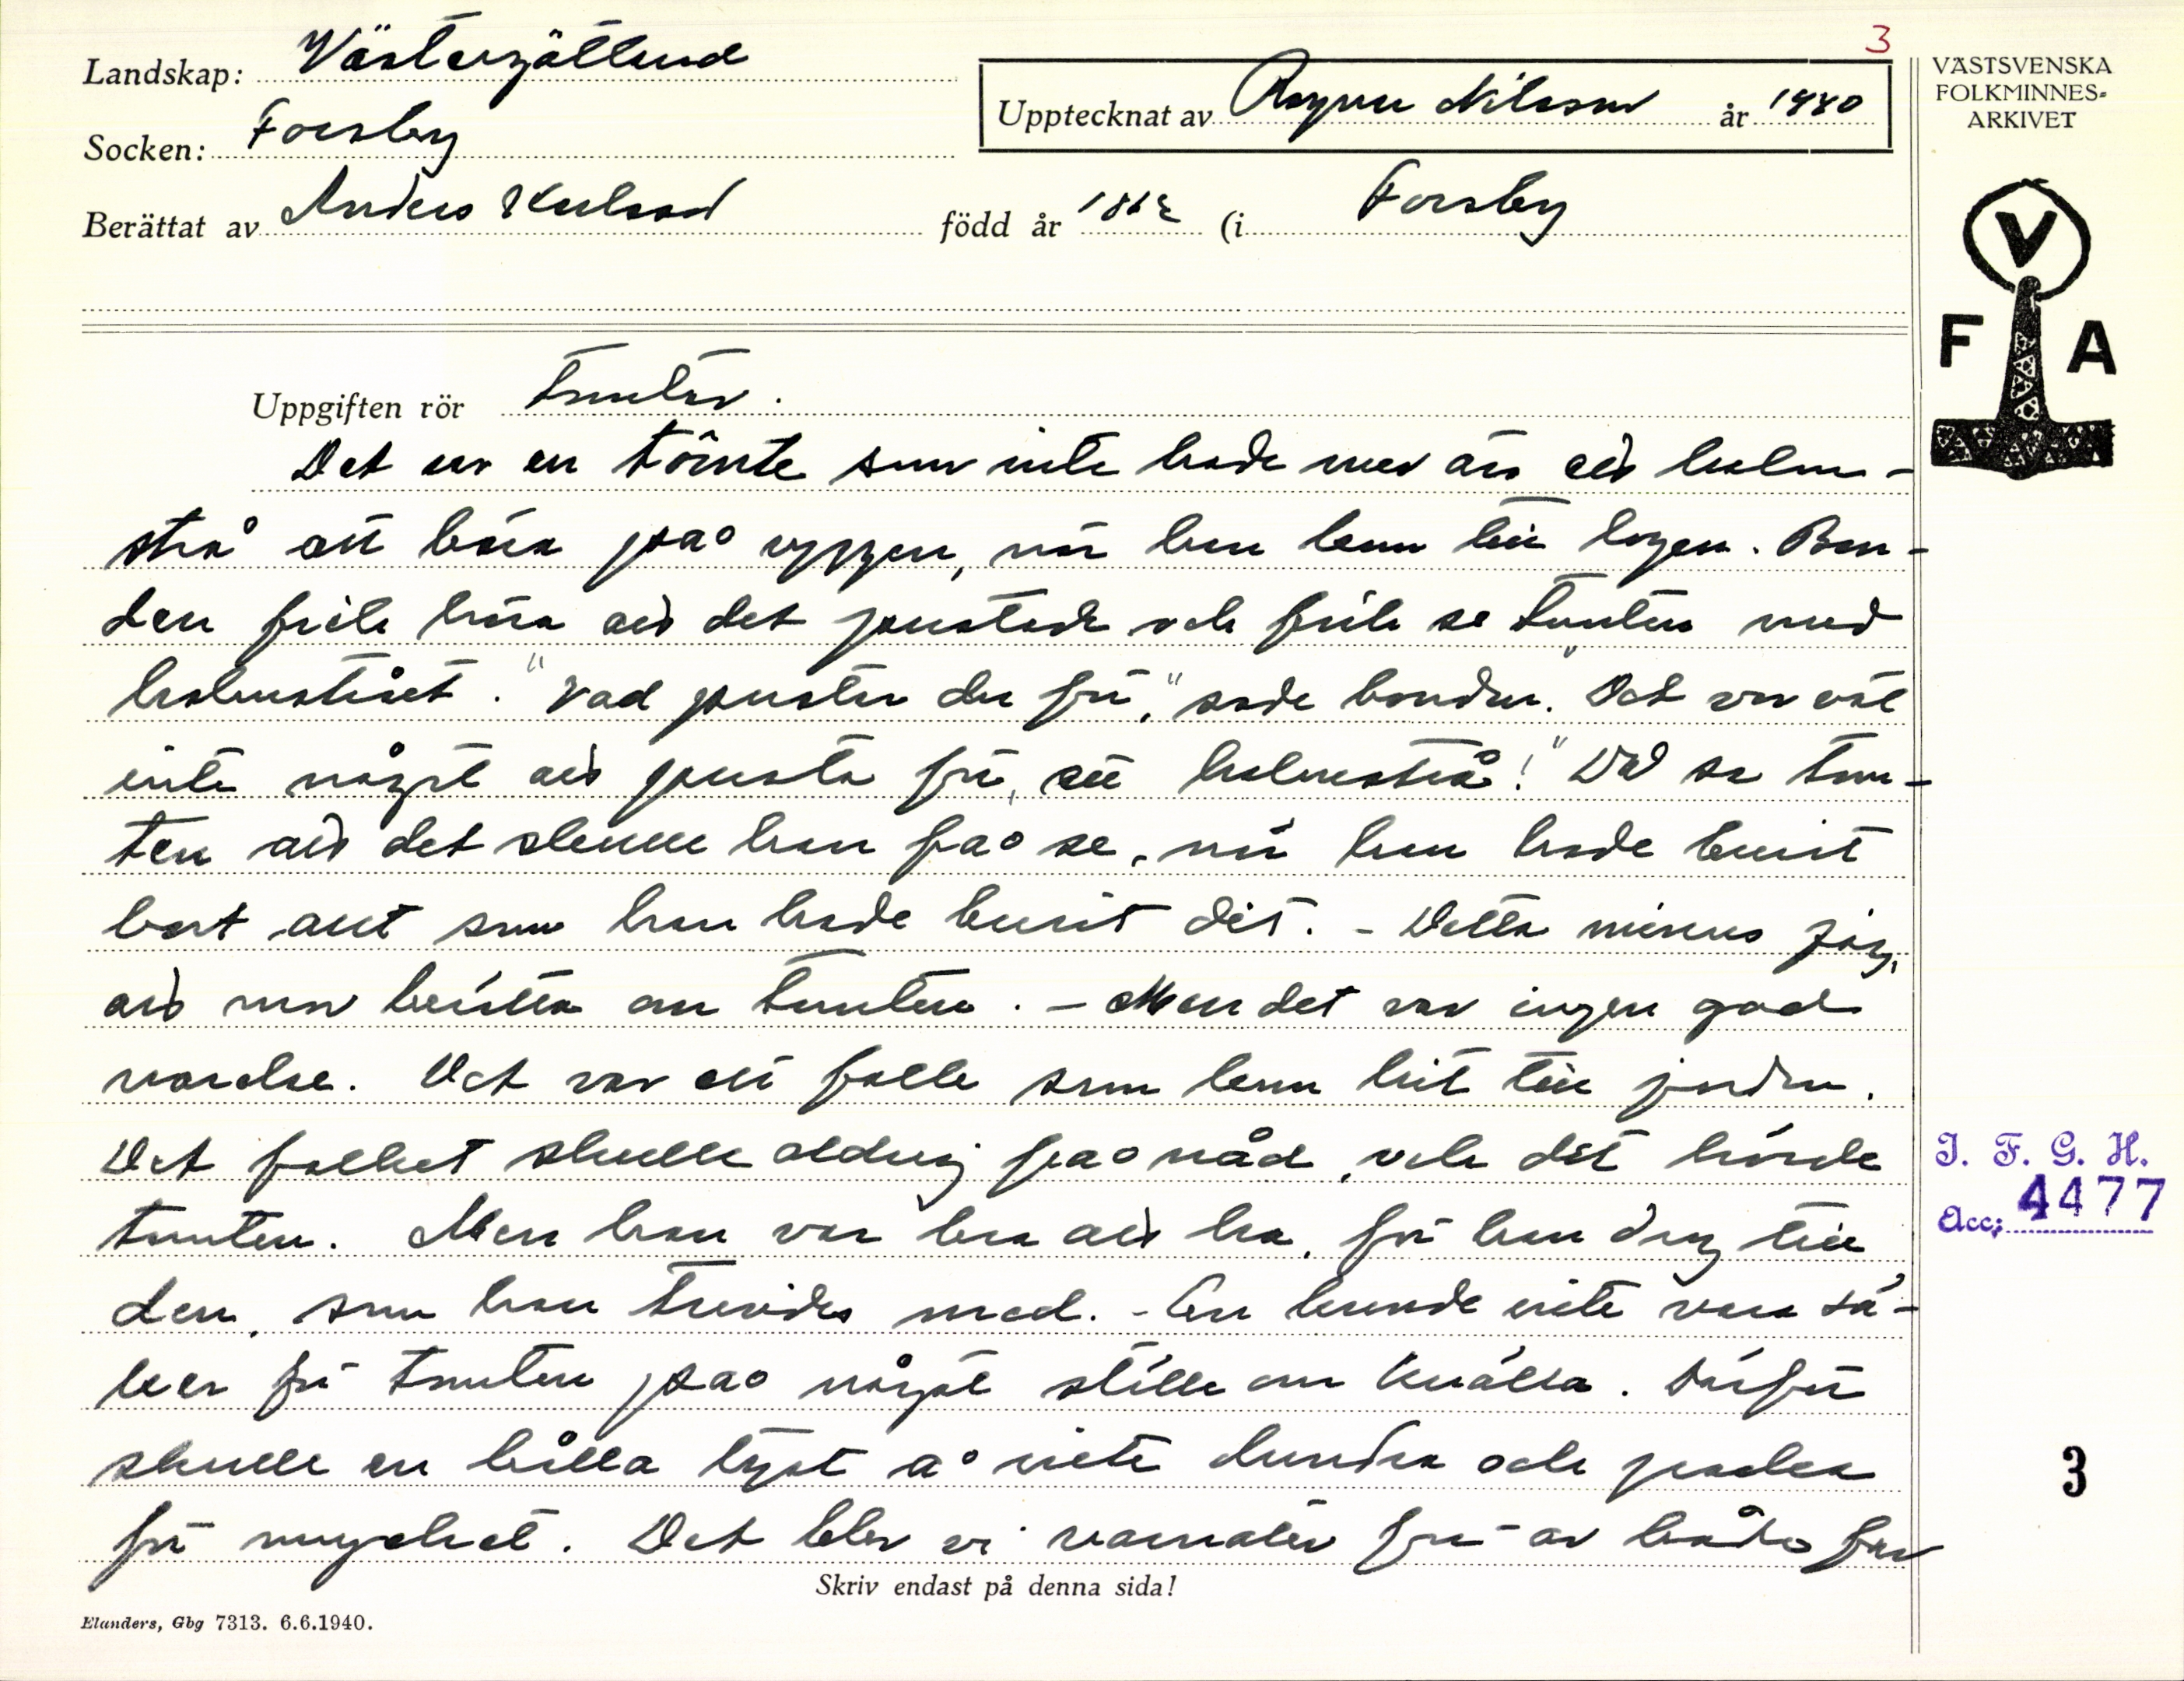 3
Landskap: Västergötland
Socken: Forsby
Upptecknat av Ragnar Nilsson år 1940
Berättat av Anders Karlsson född år 1862 (i Forsby
VÄSTSVENSKA
FOLKMINNES-
ARKIVET
V
F A
Uppgiften rör Tomten.
Det var en tömte som inte hade mer än ett halm-
strå att bära på ryggen, när han kom till logen. Bon-
den fick höra att det pustade och fick se tomten med
halmstrået. "Vad pustar du för," sade bonden. "Det var väl
inte något att pusta för, ett halmstrå!" Då sa tom-
ten att det skulle han få se, när han hade burit
bort allt som han hade burit dit. - Detta minns jag,
att mor berätta om tomten. - Men det var ingen god
varelse. Det var ett folk som kom hit till jorden.
Det folket skulle aldrig få nåd, och dit hörde
tomten. Men han var bra att ha, för han drog till
den, som han trivdes med. - En kunde inte vara sä-
ker för tomten på något ställe om kvällen. Därför
skulle en hålla tyst å inte dundra och prata
för mycket. Det blev vi varnade för av både far
Skriv endast på denna sida!
Elanders, Gbg 7313. 6.6.1940.
I. F. G. H.
Acc: 4477
3